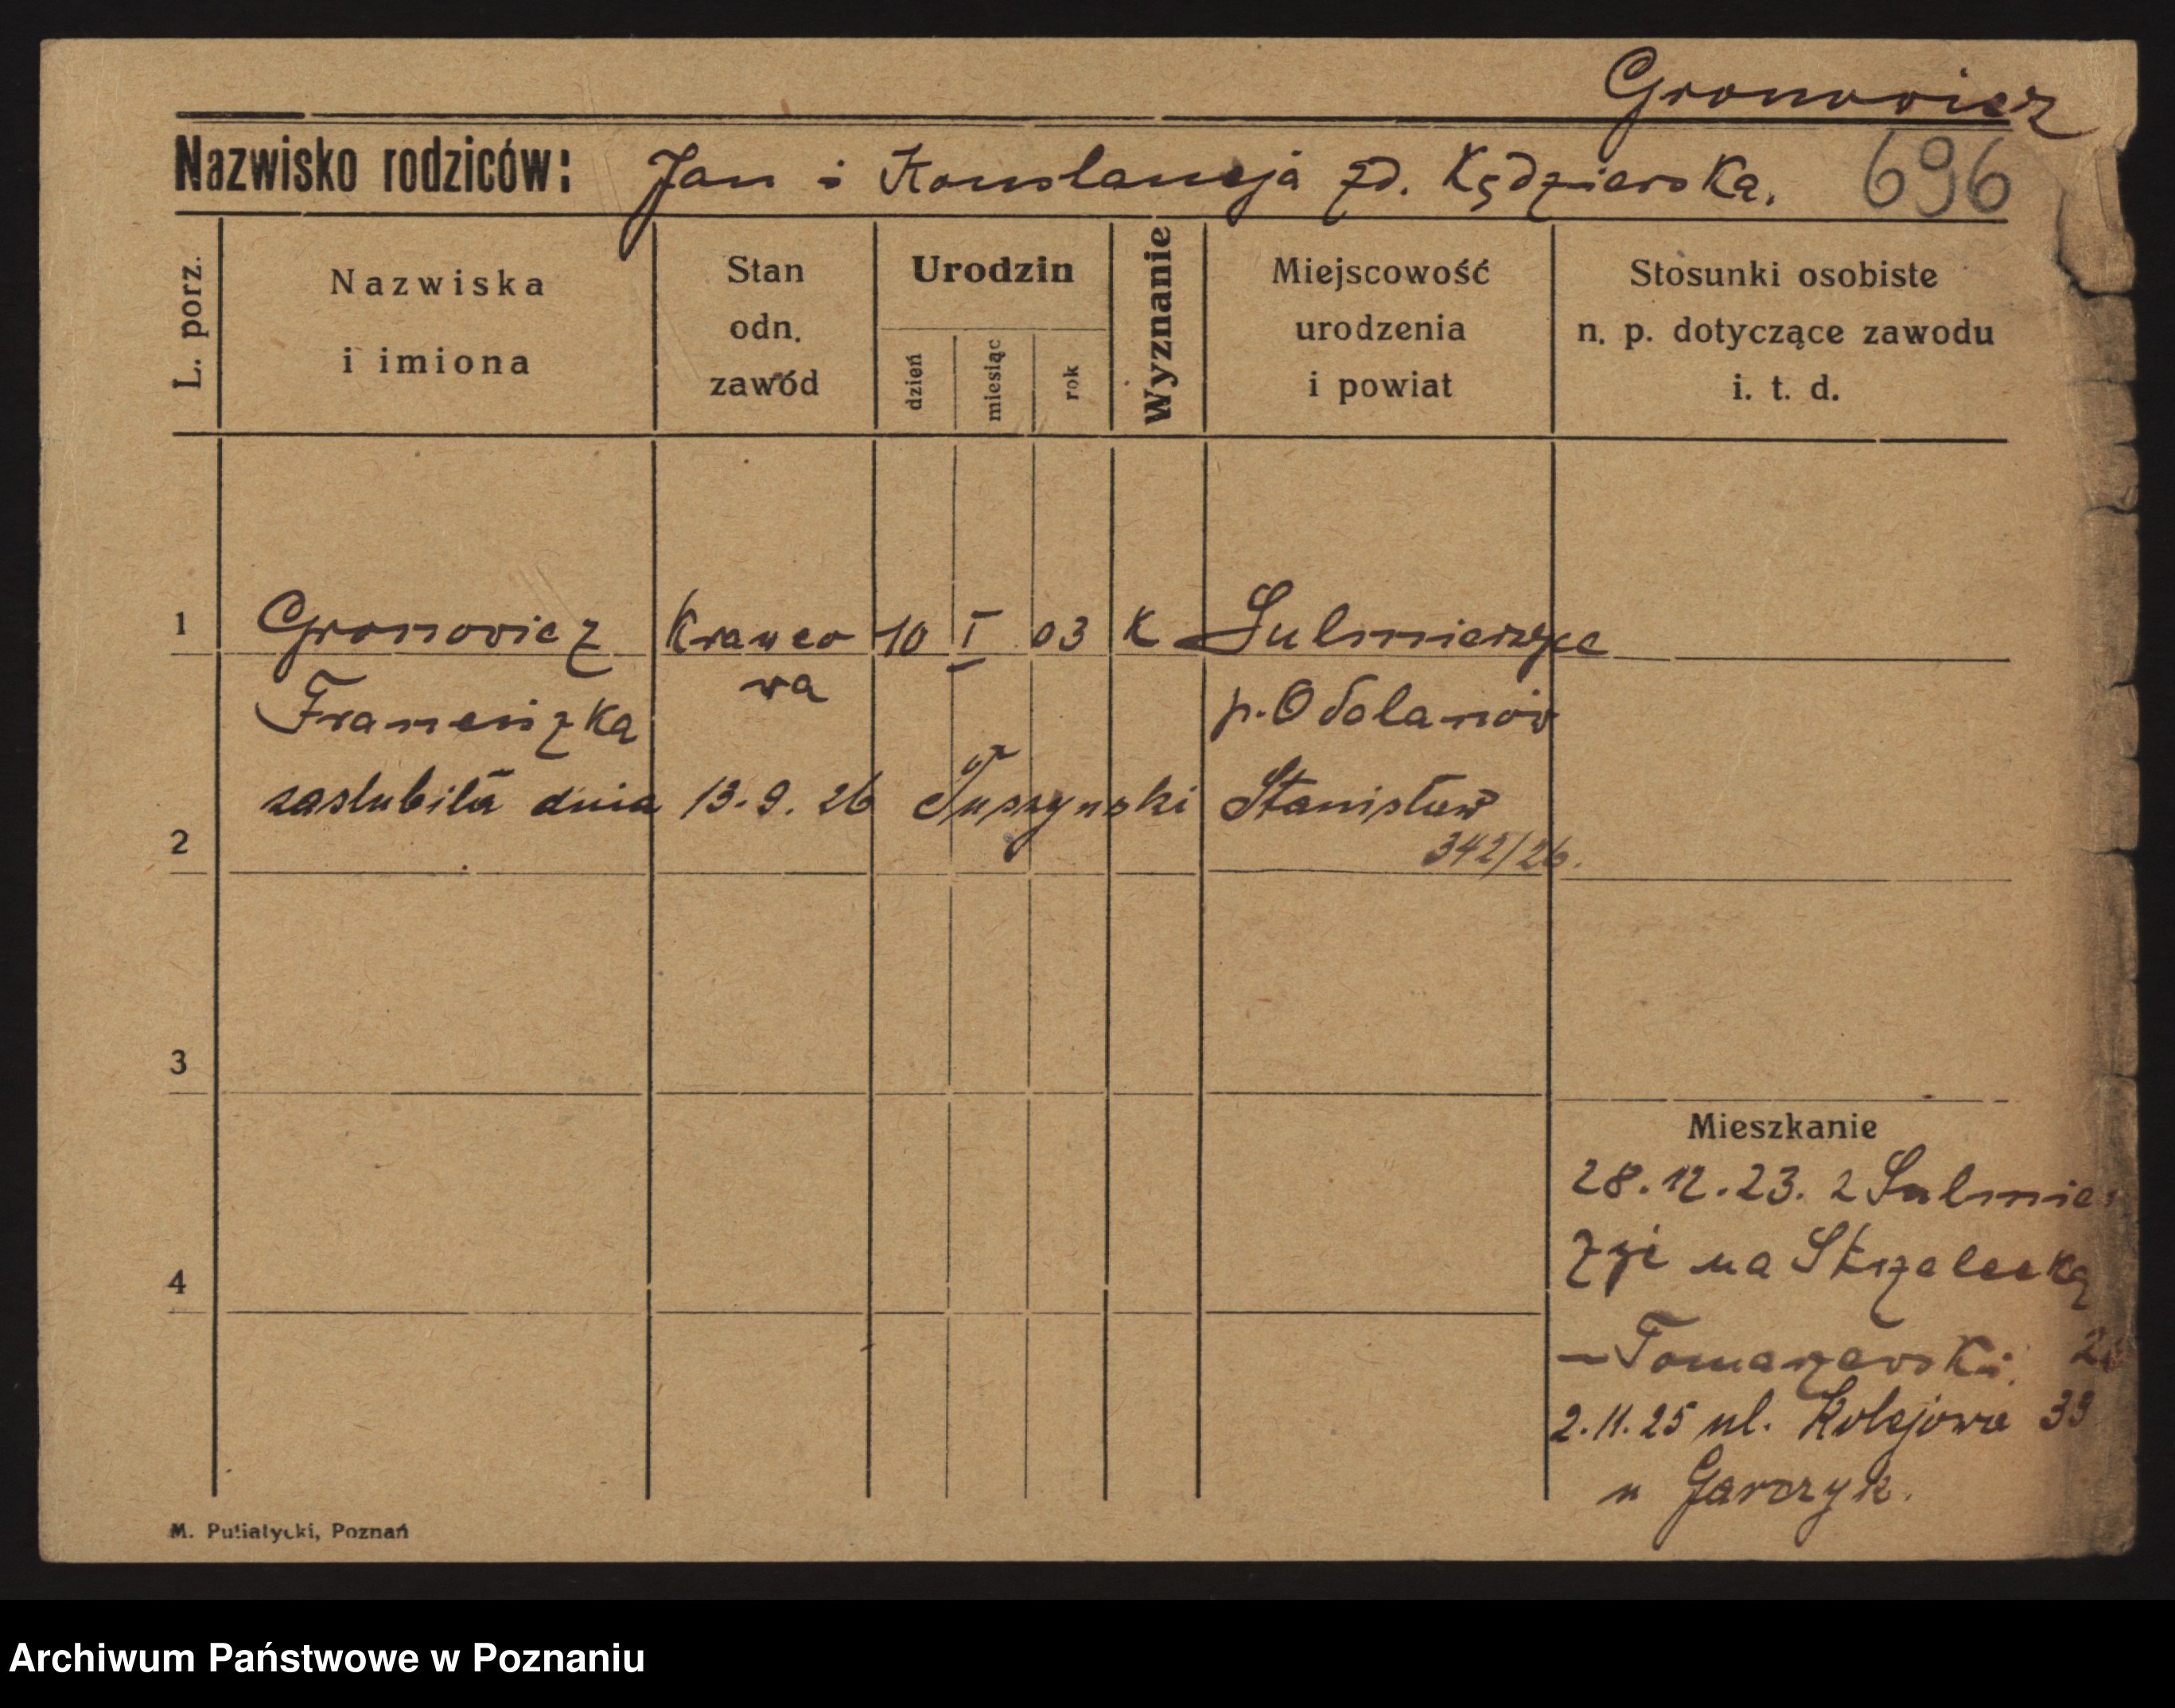 Gronowicz
Nazwisko rodziców: Jan i Konstancja zd. Kędzierska. 696
L. porz.
Nazwiska
i imiona
Stan
odn.
zawód
Urodzin
dzień
miesiąc
rok
Wyznanie
Miejscowość
urodzenia
i powiat
Stosunki osobiste
n. p. dotyczące zawodu
i. t. d.
1 Gronowicz Krawco 10 I 03 K Sulmierzyce
Franciszka wa p. Odolanów
zaslubiła dnia 13. 9. 26 Tuszynski Stanisław
2 342/26.
3
Mieszkanie
28.12.23. z Sulmier
zyc na Strzelecką
4
– Tomaszewski.
2.11.25 ul. Kolejowa 39
u Garczyk.
M. Putiatycki, Poznań
Archiwum Państwowe w Poznaniu